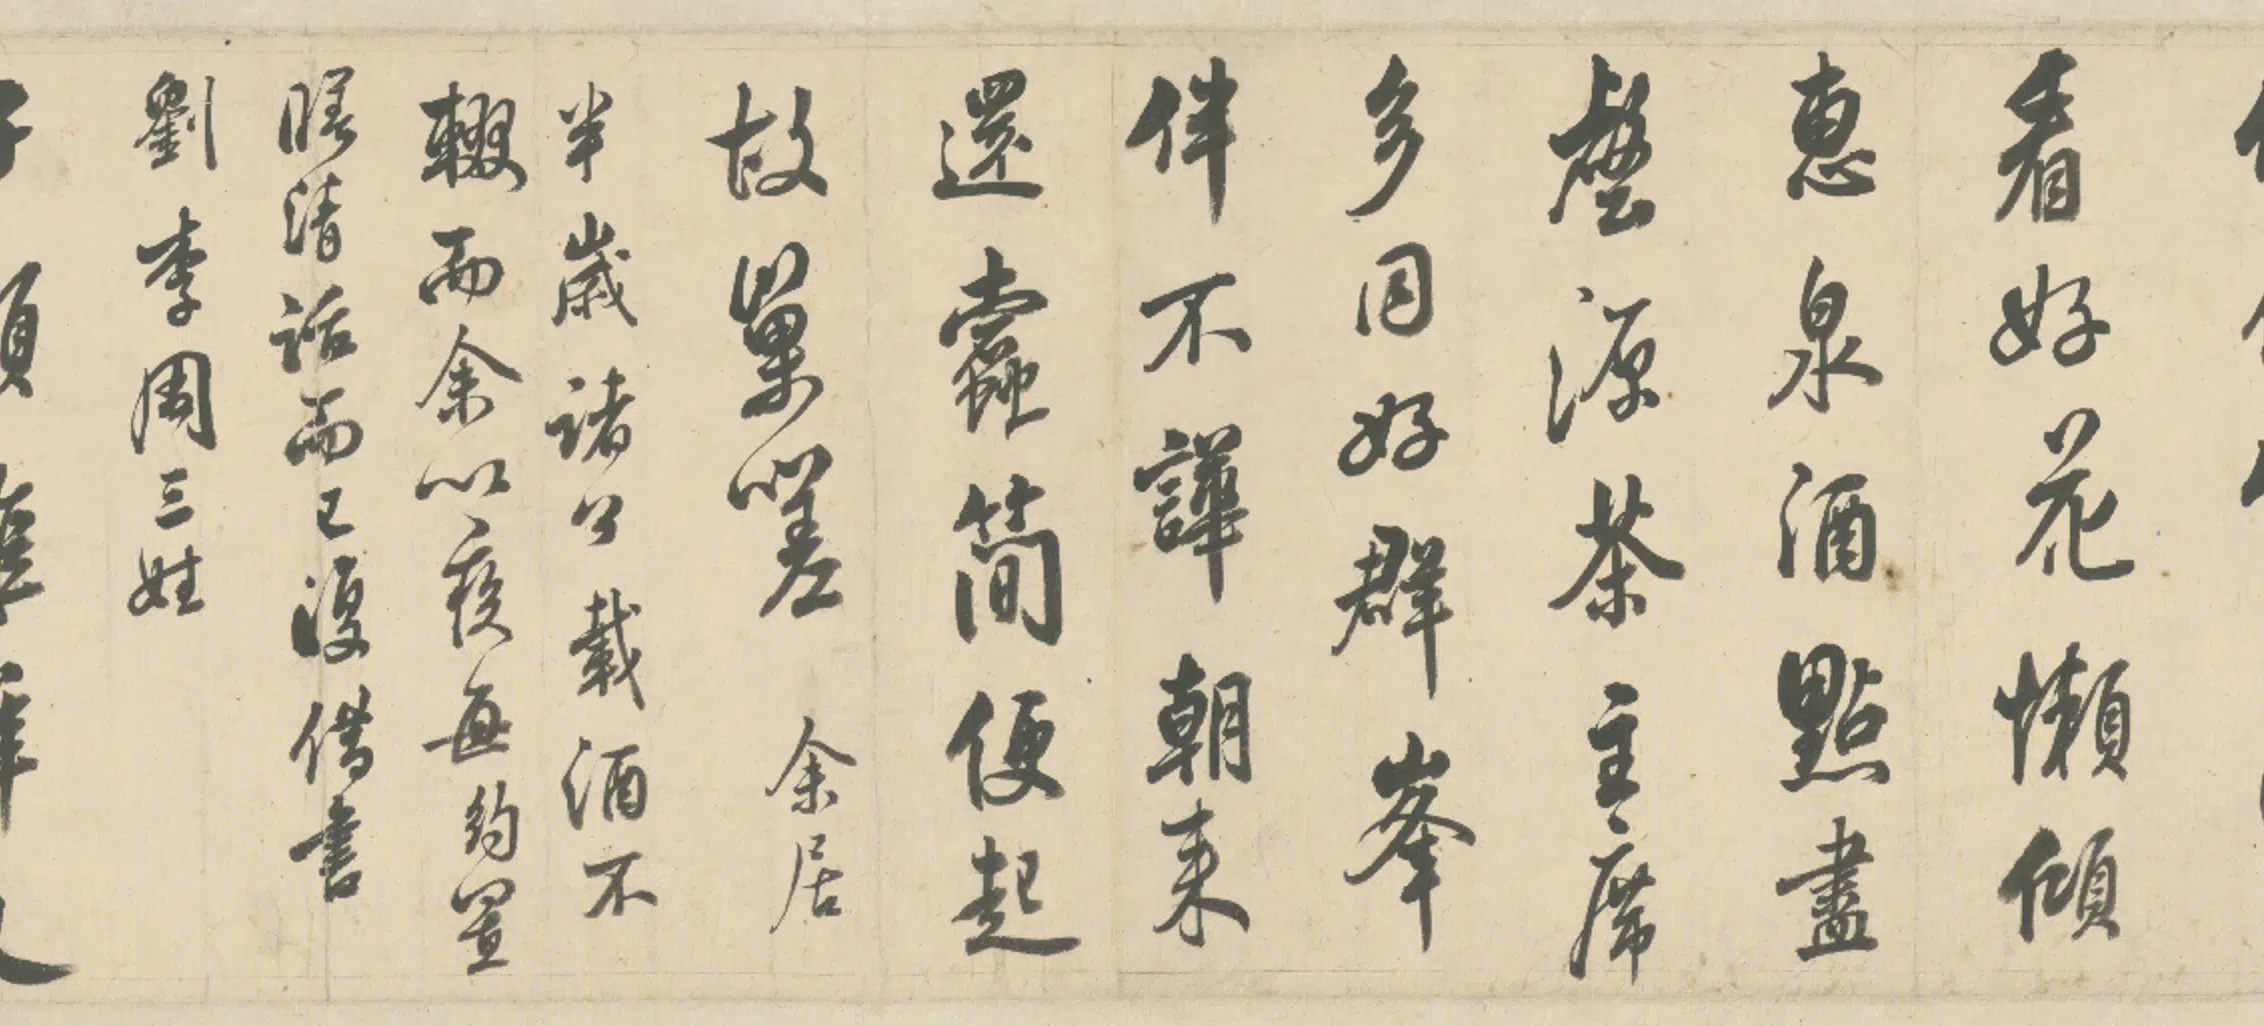 看好花懶傾
惠泉酒點盡
壑源茶主席
多同好群峯
伴不譁朝來
還蠹簡便起
故巢嗟 余居
半歲諸公載酒不
輟而余以疾每約置
膳清話而已復借書
劉李周三姓